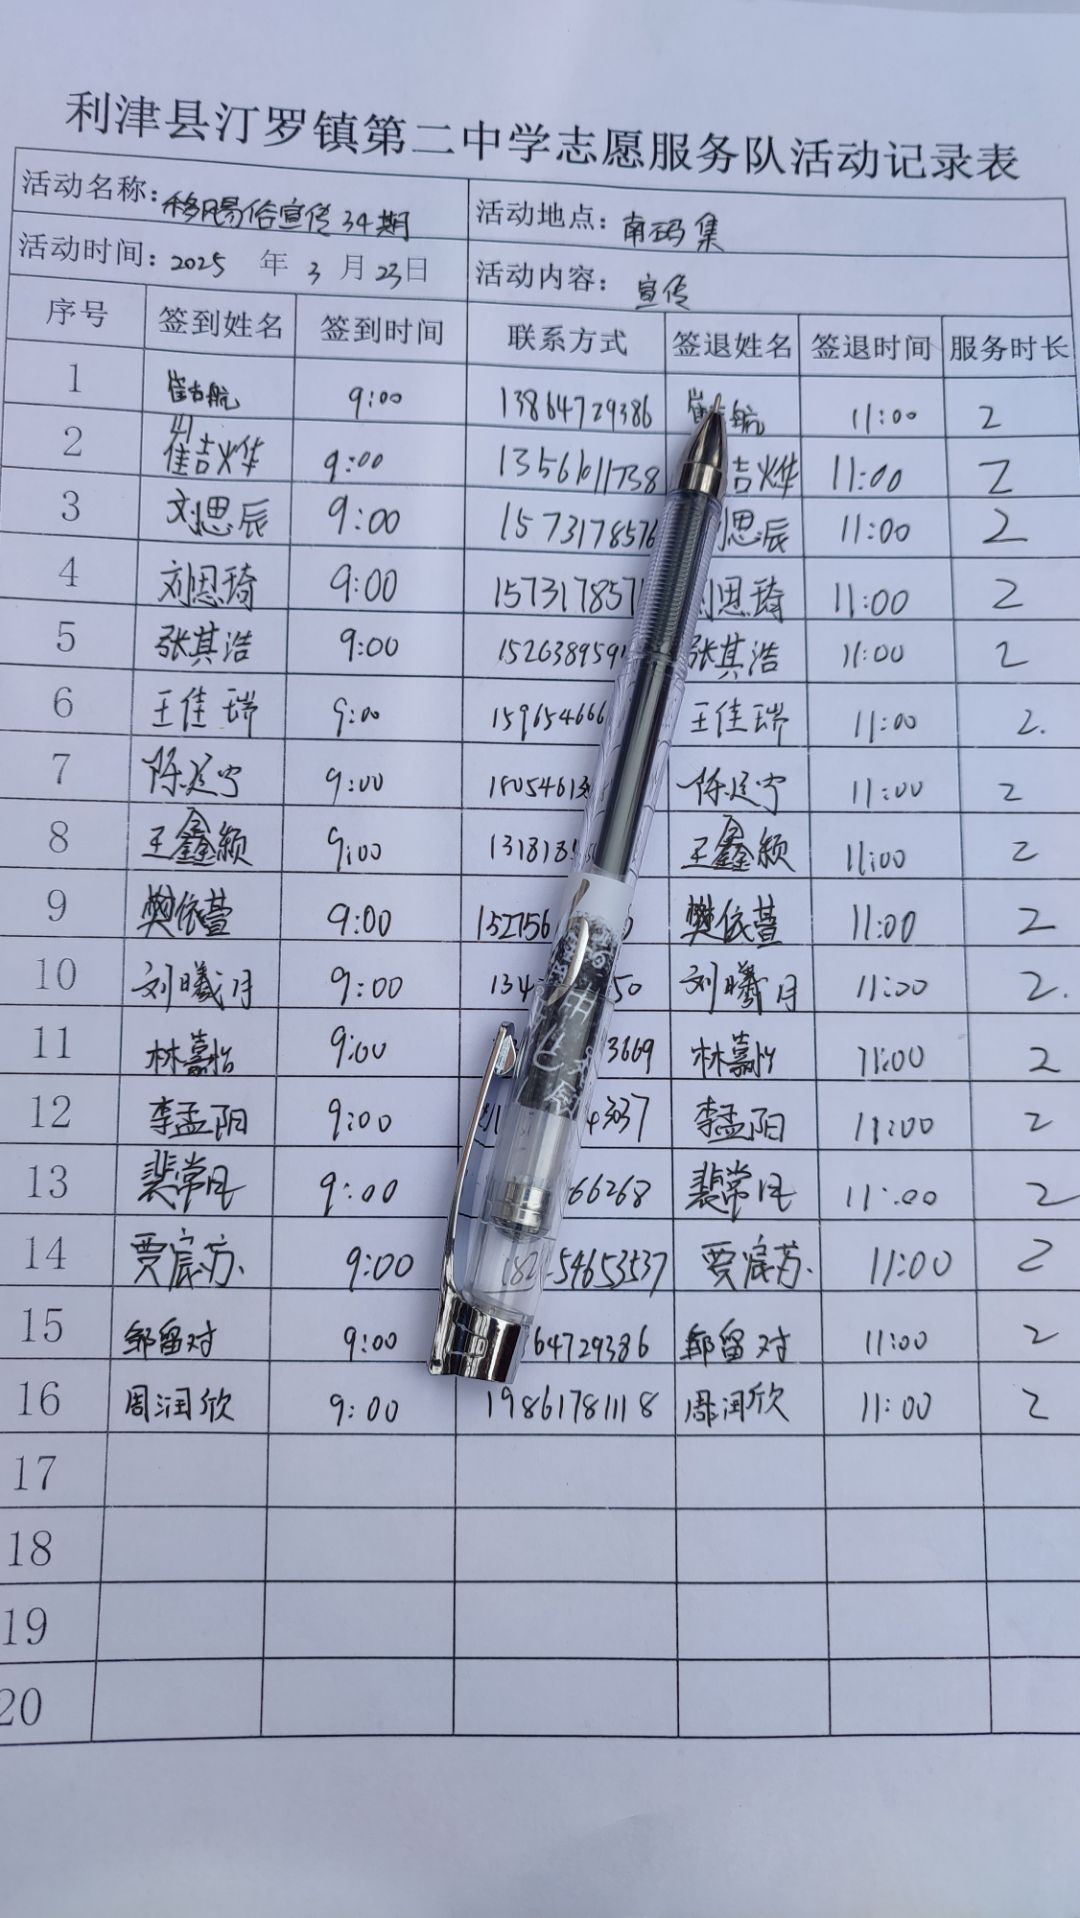 利津县汀罗镇第二中学志愿服务队活动记录表
活动名称：移风易俗宣传34期 活动地点：南码集
活动时间：2025年3月23日 活动内容：宣传
序号 签到姓名 签到时间 联系方式 签退姓名 签退时间 服务时长
1 9:00 13864729386 11:00 2
2 崔吉烨 9:00 13561011738 吉烨 11:00 2
3 刘思辰 9:00 1573178576 思辰 11:00 2
4 刘思琦 9:00 157317857 刘思琦 11:00 2
5 张其浩 9:00 152638959 张其浩 11:00 2
6 王佳瑞 9:00 159654666 王佳瑞 11:00 2.
7 陈延宁 9:00 18054613 陈延宁 11:00 2
8 王鑫颖 9:00 131818 王鑫颖 11:00 2
9 樊依萱 9:00 152756 樊依萱 11:00 2
10 刘曦月 9:00 134 50 刘曦月 11:00 2.
11 林嘉怡 9:00 3669 林嘉怡 11:00 2
12 李孟阳 9:00 3037 李孟阳 11:00 2
13 裴常风 9:00 66268 裴常风 11:00 2
14 贾宸苏 9:00 182 54653537 贾宸苏 11:00 2
15 邹留对 9:00 64729386 邹留对 11:00 2
16 周润欣 9:00 19861781118 周润欣 11:00 2
17
18
19
20